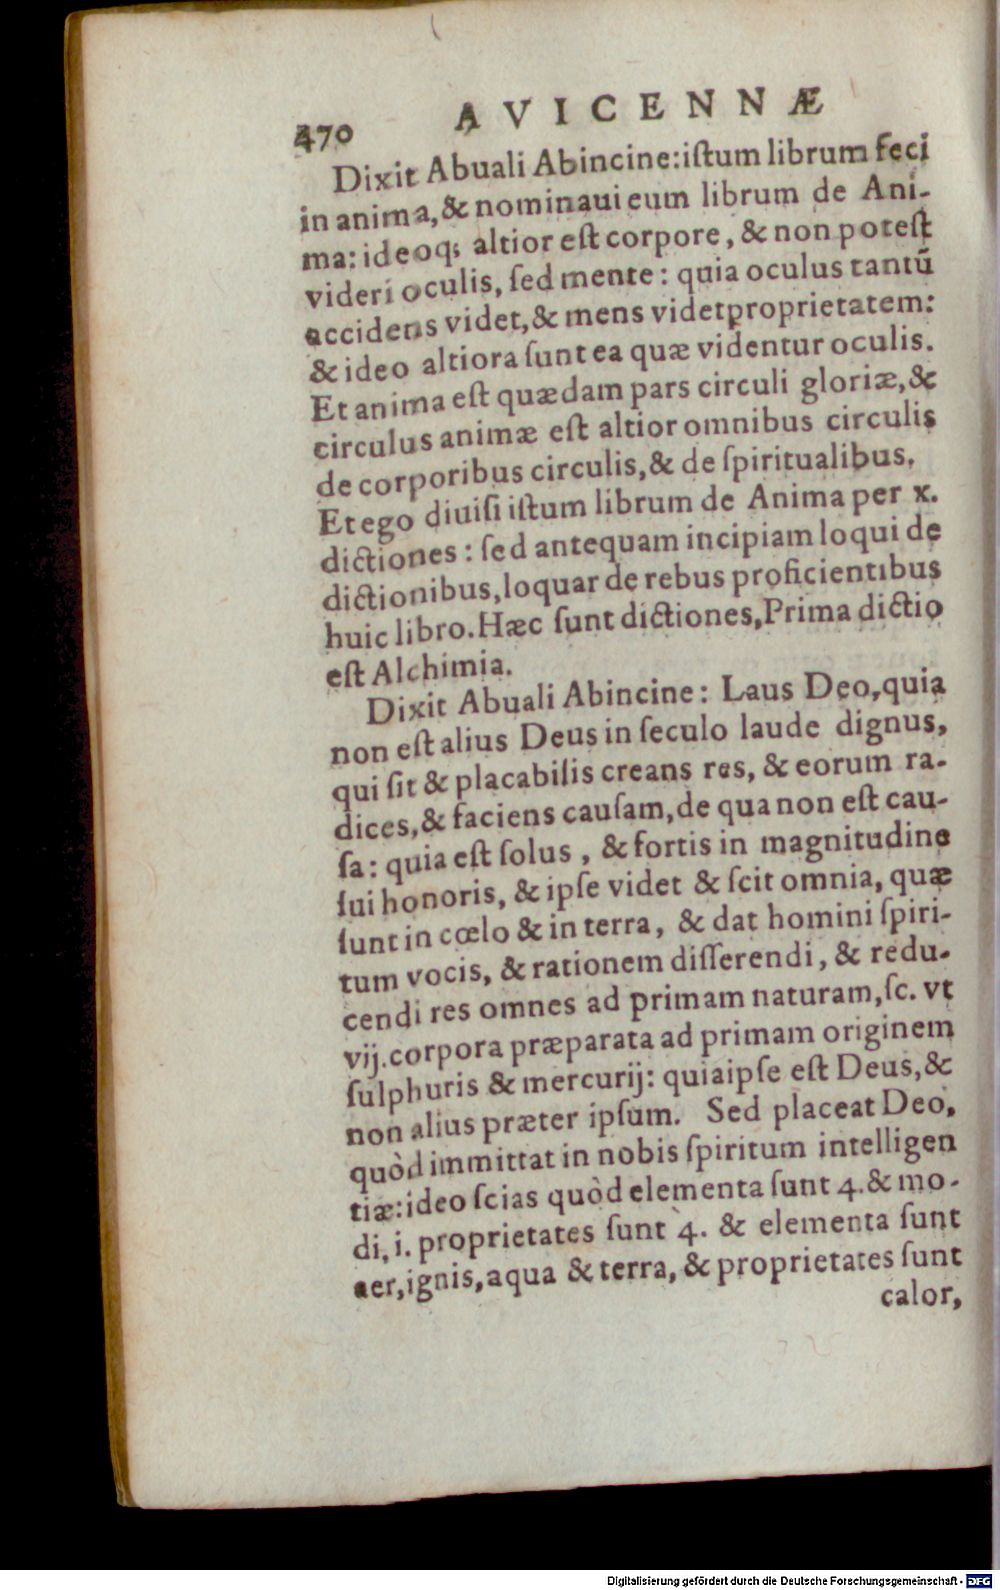 470 AVICENNÆ
Dixit Abuali Abincine:iſtum librum feci
in anima,& nominaui eum librum de Ani-
ma: ideoq; altior est corpore, & non poteſt
videri oculis, ſed mente: quia oculus tantũ
accidens videt,& mens videt proprietatem:
& ideo altiora ſunt ea quæ videntur oculis.
Et anima eſt quædam pars circuli gloriæ,&
circulus animæ eſt altior omnibus circulis
de corporibus circulis,& de ſpiritualibus.
Et ego diuiſi iſtum librum de Anima per x.
dictiones: ſed antequam incipiam loqui de
dictionibus,loquar de rebus proficientibus
huic libro.Hæc ſunt dictiones,Prima dictio
eſt Alchimia.
Dixit Abuali Abincine: Laus Deo,quia
non eſt alius Deus in ſeculo laude dignus,
qui ſit & placabilis creans res, & eorum ra-
dices,& faciens cauſam,de qua non eſt cau-
ſa: quia eſt ſolus, & fortis in magnitudine
ſui honoris, & ipſe videt & ſcit omnia, quæ
ſunt in cœlo & in terra, & dat homini ſpiri-
tum vocis, & rationem diſſerendi, & redu-
cendi res omnes ad primam naturam,ſc. vt
vij.corpora præparata ad primam originem
ſulphuris & mercurij: quia ipſe eſt Deus,&
non alius præter ipſum. Sed placeat Deo,
quòd immittat in nobis ſpiritum intelligen
tiæ:ideo ſcias quòd elementa ſunt 4.& mo-
di, i. proprietates ſunt 4. & elementa ſunt
aer,ignis,aqua & terra, & proprietates ſunt
calor,
Digitalisierung gefördert durch die Deutsche Forschungsgemeinschaft - DFG